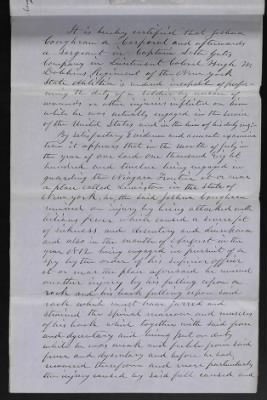 It is hereby certified that Joshua
Congheam a Corporal and afterwards
a Sergeant in Captain Seth Gates
Company in Lieutenant Colonel Hugh W
Dobbins Regiment of the New York
State Militia is rendered incapable of perfor-
ming the duty of a soldier by reason of
wounds or other injuries inflicted on him
while he was actually engaged in the service
of the United States and in the line of his duty viz:
By satisfactory evidence and accurate examina-
tion it appears that in the month of July in
the year of our Lord one thousand eight
hundred and twelve being engaged in
guarding the Niagara Frontier at or near
a place called Lewiston in the State of
New York, he the said Joshua
received an injury by being attacked with
bilious fever which caused a
of sickness and dysentery and
and also in the month of August in the
year 1812 being engaged in pursuit of a
spy by the order of his superior officer
at or near the place aforesaid he received
another injury by his falling upon a
rock and his back falling upon said
rock which must have jarred and
strained the spinal marrow and muscles
of his back which together with said fever
and dysentery and being put on duty
while he was weak and feeble from said
fever and dysentery and before he had
recovered therefrom and more particularly
the injury caused by said fall caused and